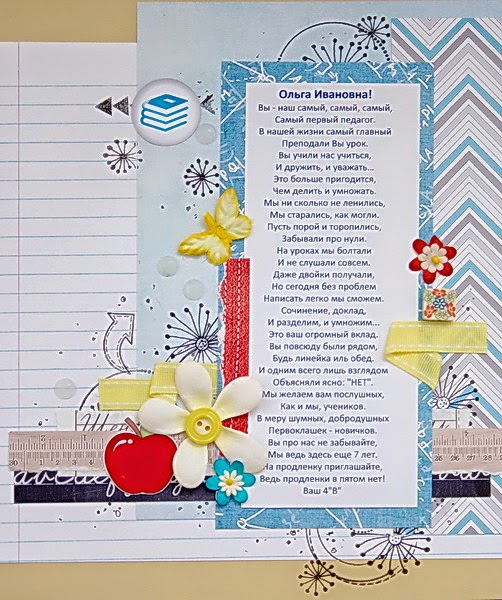 Ольга Ивановна!
Вы - наш самый, самый, самый,
Самый первый педагог.
В нашей жизни самый главный
Преподали Вы урок.
Вы учили нас учиться,
И дружить, и уважать...
Это больше пригодится,
Чем делить и умножать.
Мы ни сколько не ленились,
Мы старались, как могли.
Пусть порой и торопились,
Забывали про нули.
На уроках мы болтали
И не слушали совсем.
Даже двойки получали,
Но сегодня без проблем
Написать легко мы сможем.
Сочинение, доклад,
И разделим, и умножим...
Это ваш огромный вклад.
Вы повсюду были рядом,
Будь линейка иль обед.
И одним всего лишь взглядом
Объясняли ясно: "НЕТ".
Мы желаем вам послушных,
Как и мы, учеников.
В меру шумных, добродушных
Первоклашек - новичков.
Вы про нас не забывайте,
Мы ведь здесь еще 7 лет.
На продленку приглашайте,
Ведь продленки в пятом нет!
Ваш 4"В"